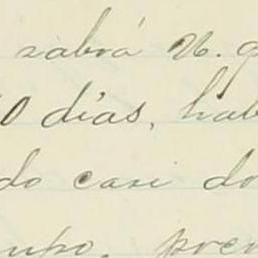 sabrá V. q
0 días, hab
do casi do
mpo, prev